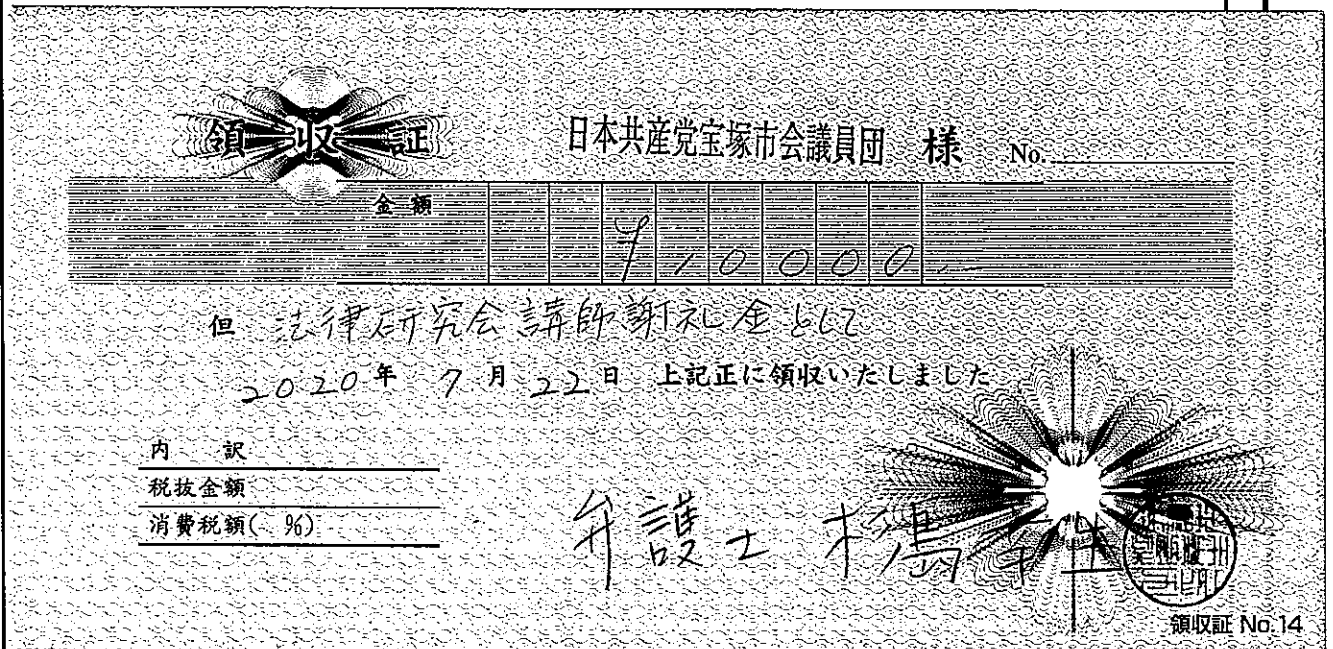 領収証
日本共産党宝塚市会議員団 様 No.
金額
¥10000.—
但 法律研究会講師謝礼金として
2020年 7月 22日 上記正に領収いたしました
内 訳
税抜金額
消費税額( %)
弁護士
領収証 No.14